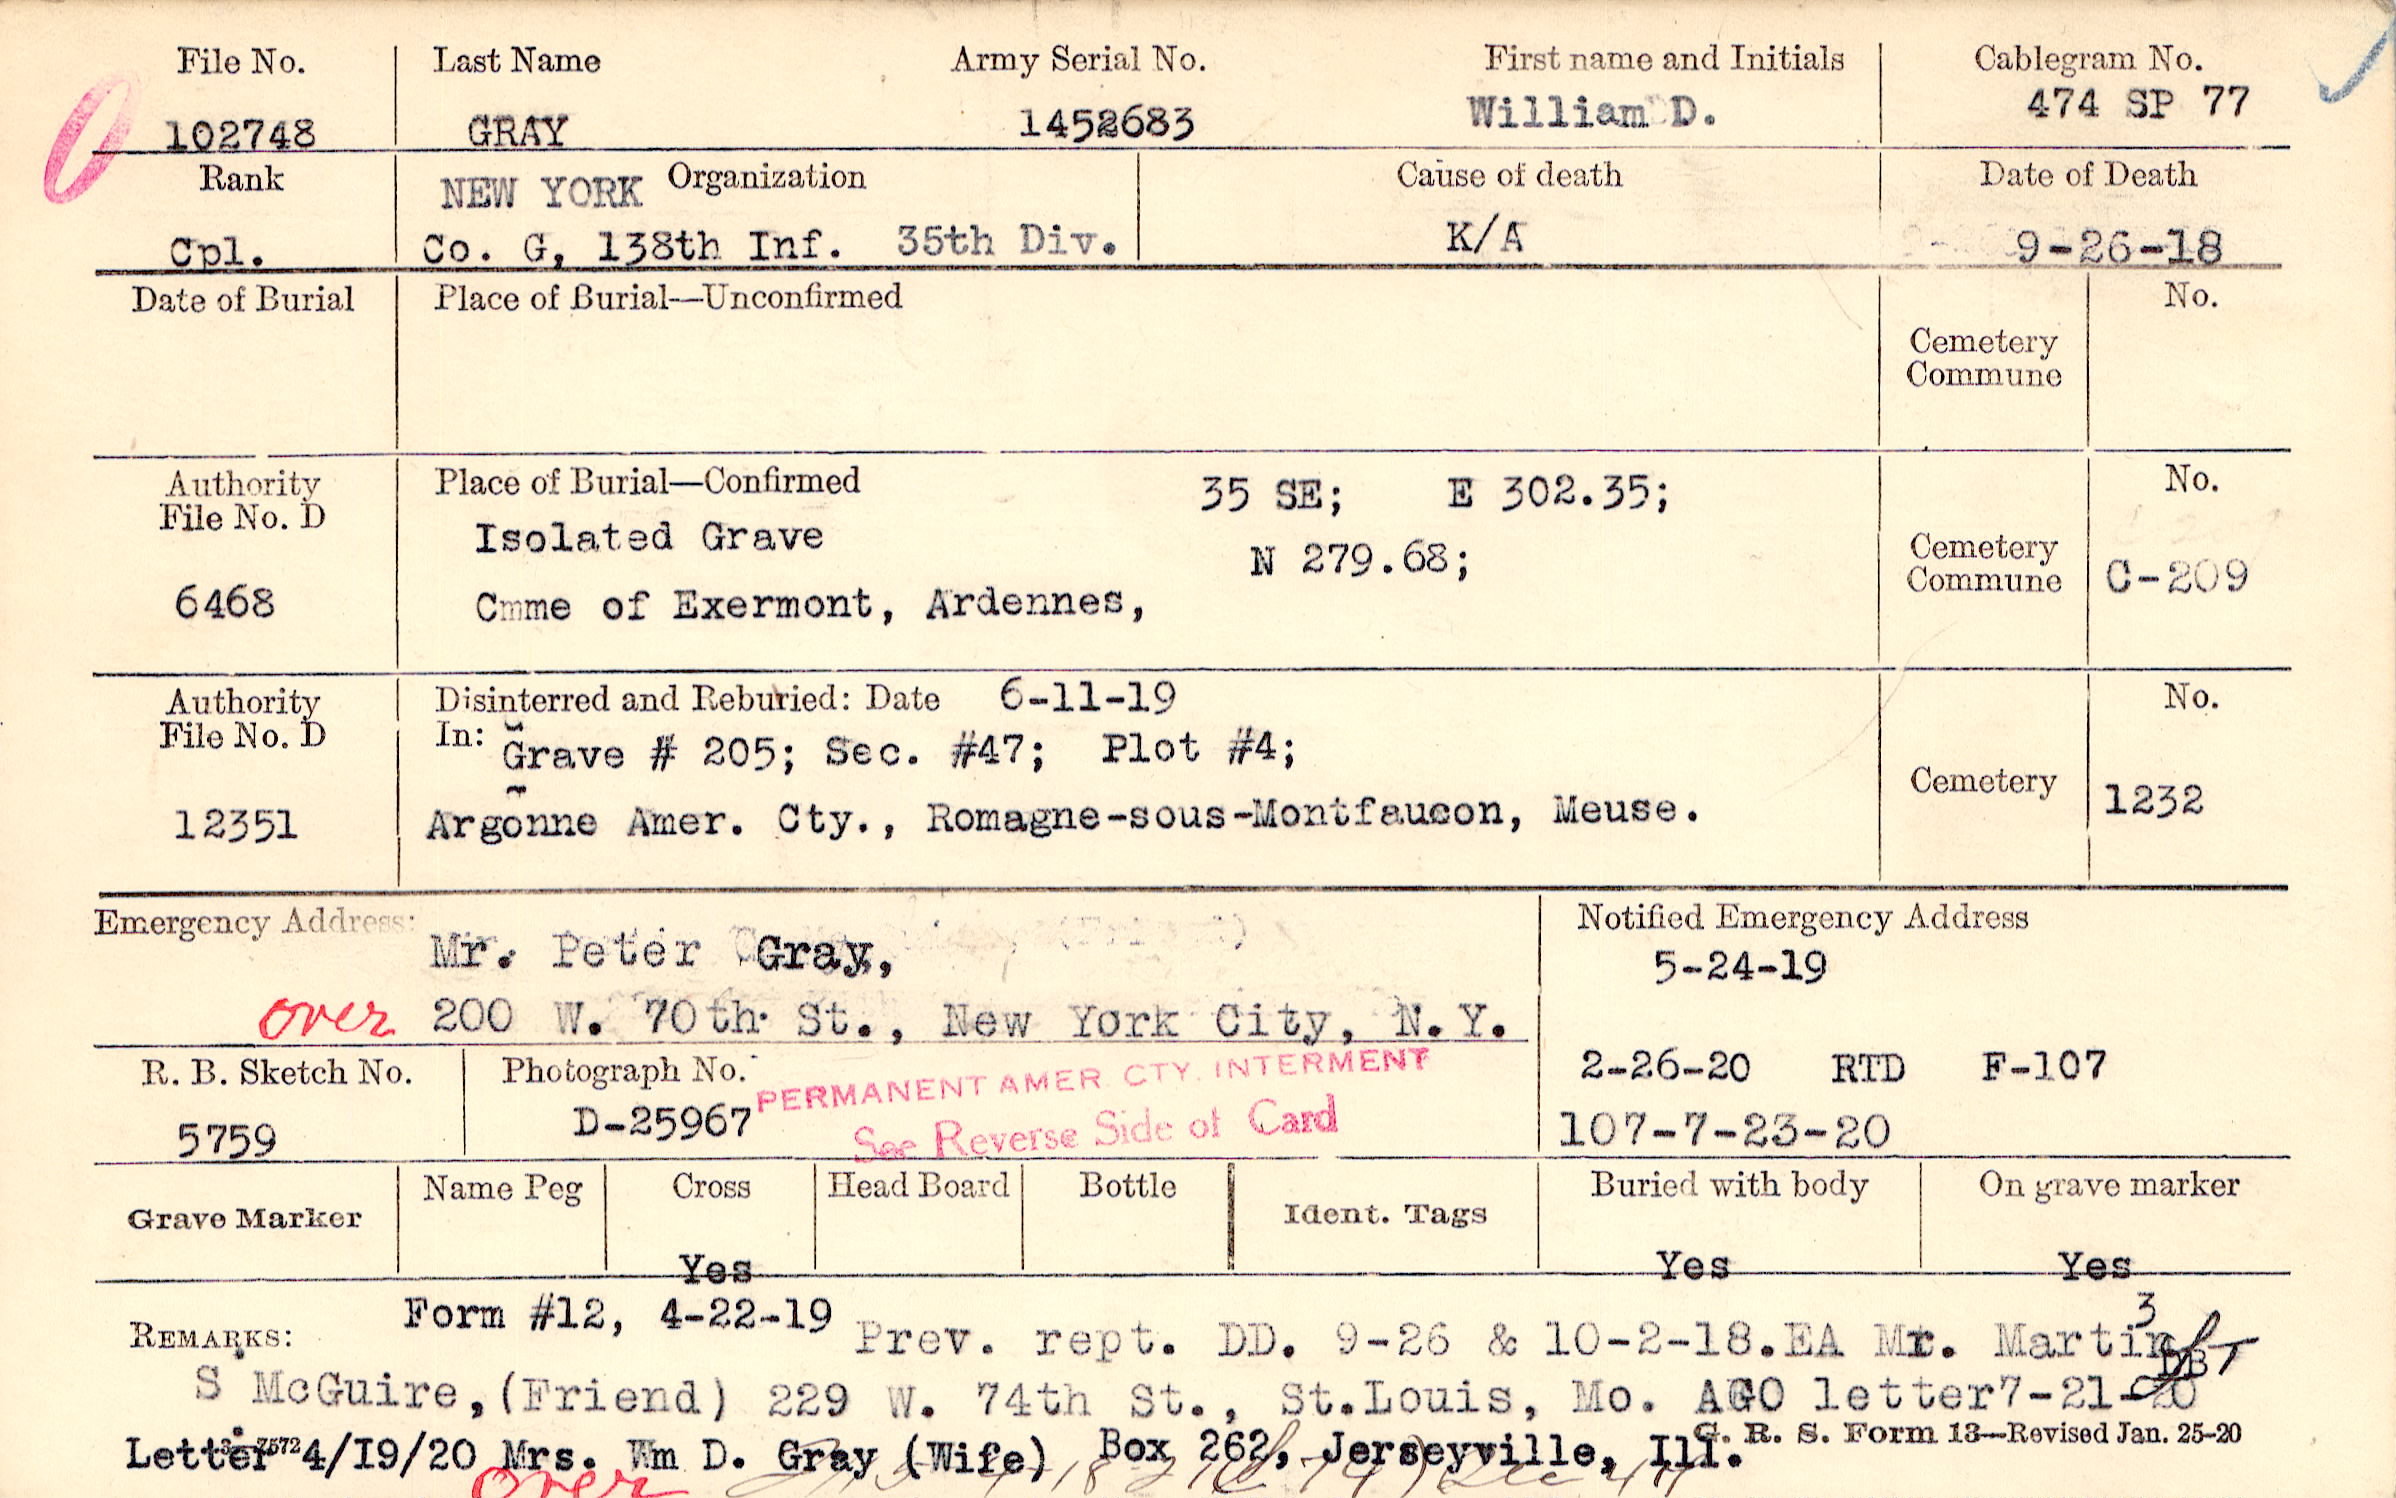 File No. Last Name Army Serial No. First name and Initials Cablegram No.
102748 GRAY 1452683 William D. 474 SP 77
Rank NEW YORK Organization Cause of death Date of Death
Cpl. Co. G, 138th Inf. 35th Div. K/A 9-26-18
Date of Burial Place of Burial—Unconfirmed No.
Cemetery
Commune
Authority Place of Burial—Confirmed 35 SE; E 302.35; No.
File No. D Isolated Grave N 279.68; Cemetery
6468 Cmme of Exermont, Ardennes, Commune C-209
Authority Disinterred and Reburied: Date 6-11-19 No.
File No. D In: Grave # 205; Sec. #47; Plot #4;
Cemetery 1232
12351 Argonne Amer. Cty., Romagne-sous-Montfaucon, Meuse.
Emergency Address: Notified Emergency Address
Mr. Peter Gray, 5-24-19
over 200 W. 70th St., New York City, N.Y.
R. B. Sketch No. Photograph No. PERMANENT AMER. CTY. INTERMENT 2-26-20 RTD F-107
5759 D-25967 See Reverse Side of Card 107-7-23-20
Grave Marker Name Peg Cross Head Board Bottle Ident. Tags Buried with body On grave marker
Yes Yes Yes
REMARKS: Form #12, 4-22-19 Prev. rept. DD. 9-26 & 10-2-18.EA Mr. Martin
S McGuire,(Friend) 229 W. 74th St., St.Louis, Mo. AGO letter7-21-20
G. R. S. Form 13—Revised Jan. 25-20
Letter 4/19/20 Mrs. Wm D. Gray (Wife) Box 262, Jerseyville, Ill.
over